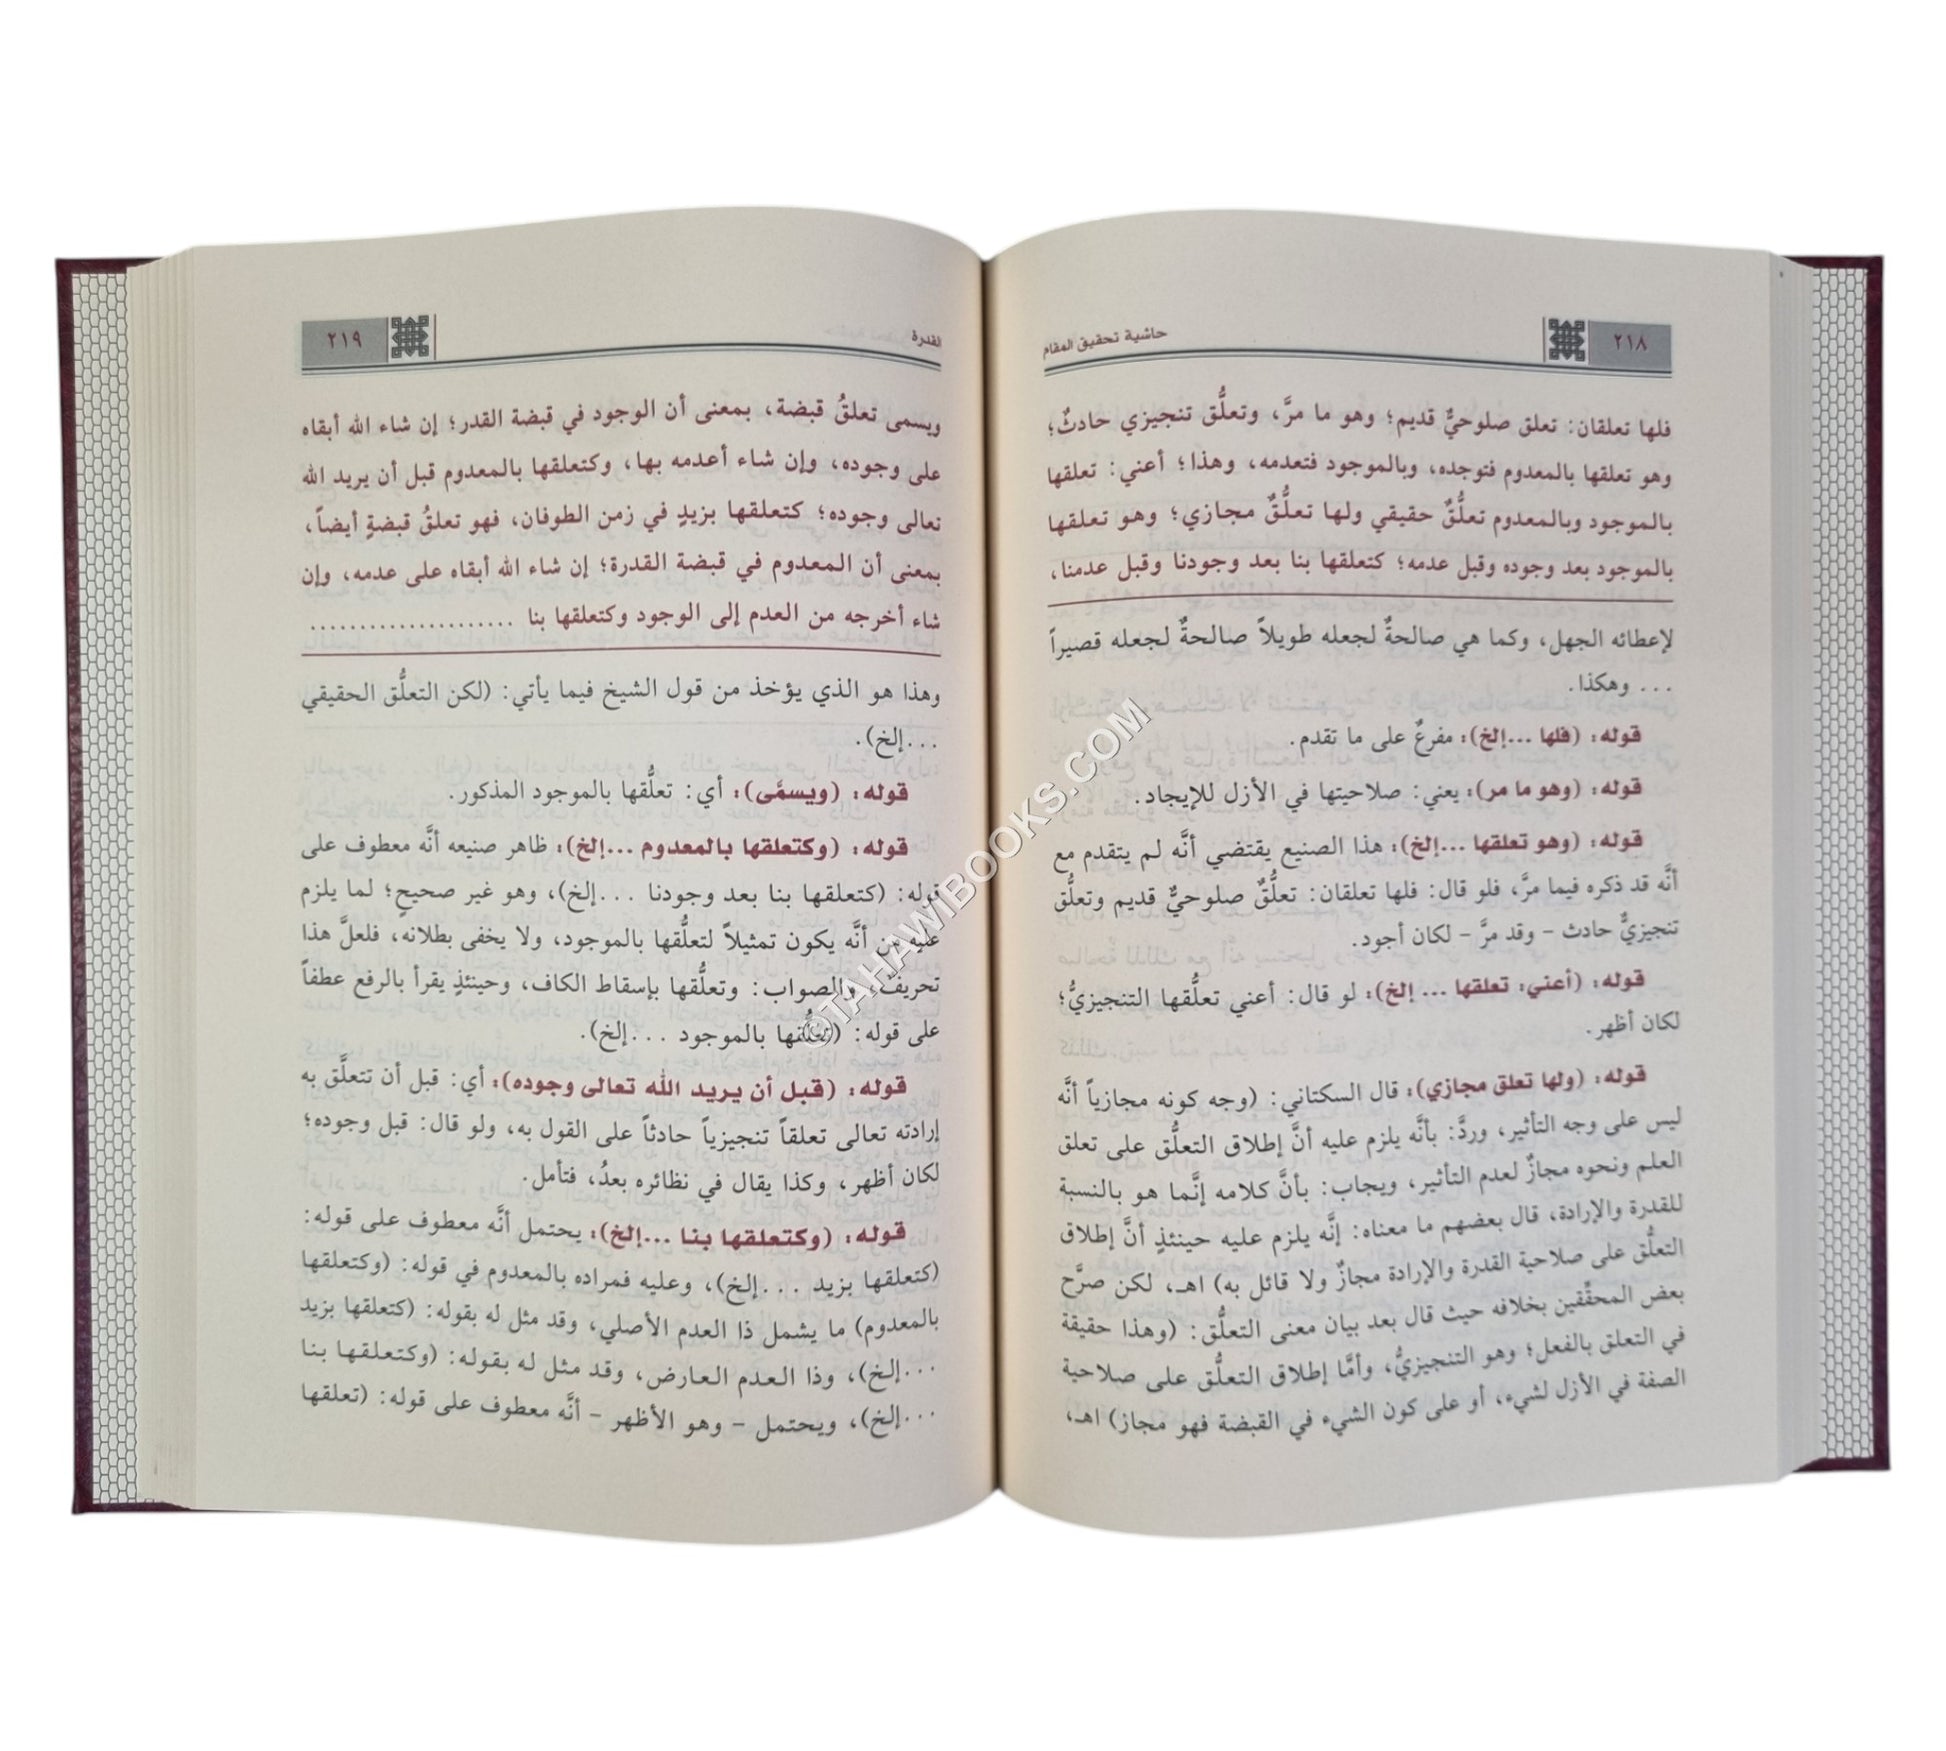 ٢١٨
حاشية تحقيق المقام
فلها تعلقان: تعلق صلوحيٌّ قديم؛ وهو ما مرَّ، وتعلُّق تنجيزي حادثٌ؛
وهو تعلقها بالمعدوم فتوجده، وبالموجود فتعدمه، وهذا؛ أعني: تعلقها
بالموجود وبالمعدوم تعلُّقٌ حقيقي ولها تعلُّقٌ مجازي؛ وهو تعلقها
بالموجود بعد وجوده وقبل عدمه؛ كتعلقها بنا بعد وجودنا وقبل عدمنا،
لإعطائه الجهل، وكما هي صالحةٌ لجعله طويلاً صالحةٌ لجعله قصيراً
... وهكذا.
قوله: (فلها ...إلخ): مفرعٌ على ما تقدم.
قوله: (وهو ما مر): يعني: صلاحيتها في الأزل للإيجاد.
قوله: (وهو تعلقها ...إلخ): هذا الصنيع يقتضي أنَّه لم يتقدم مع
أنَّه قد ذكره فيما مرَّ، فلو قال: فلها تعلقان: تعلُّقٌ صلوحيٌّ قديم وتعلُّق
تنجيزيٌّ حادث - وقد مرَّ - لكان أجود.
قوله: (أعني: تعلقها ... إلخ): لو قال: أعني تعلُّقها التنجيزيُّ؛
لكان أظهر.
قوله: (ولها تعلق مجازي): قال السكتاني: (وجه كونه مجازياً أنَّه
ليس على وجه التأثير، وردَّ: بأنَّه يلزم عليه أنَّ إطلاق التعلُّق على تعلق
العلم ونحوه مجازٌ لعدم التأثير، ويجاب: بأنَّ كلامه إنَّما هو بالنسبة
للقدرة والإرادة، قال بعضهم ما معناه: إنَّه يلزم عليه حينئذٍ أنَّ إطلاق
التعلُّق على صلاحية القدرة والإرادة مجازٌ ولا قائل به) اهـ، لكن صرَّح
بعض المحقِّقين بخلافه حيث قال بعد بيان معنى التعلُّق: (وهذا حقيقة
في التعلق بالفعل؛ وهو التنجيزيُّ، وأمَّا إطلاق التعلُّق على صلاحية
الصفة في الأزل لشيء، أو على كون الشيء في القبضة فهو مجاز) اهـ،
القدرة
٢١٩
ويسمى تعلقُ قبضة، بمعنى أن الوجود في قبضة القدر؛ إن شاء الله أبقاه
على وجوده، وإن شاء أعدمه بها، وكتعلقها بالمعدوم قبل أن يريد الله
تعالى وجوده؛ كتعلقها بزيدٍ في زمن الطوفان، فهو تعلقُ قبضةٍ أيضاً،
بمعنى أن المعدوم في قبضة القدرة؛ إن شاء الله أبقاه على عدمه، وإن
شاء أخرجه من العدم إلى الوجود وكتعلقها بنا ....................
وهذا هو الذي يؤخذ من قول الشيخ فيما يأتي: (لكن التعلُّق الحقيقي
...إلخ).
قوله: (ويسمَّى): أي: تعلُّقها بالموجود المذكور.
قوله: (وكتعلقها بالمعدوم ...إلخ): ظاهر صنيعه أنَّه معطوف على
قوله: (كتعلقها بنا بعد وجودنا ...إلخ)، وهو غير صحيحٍ؛ لما يلزم
عليه من أنَّه يكون تمثيلاً لتعلُّقها بالموجود، ولا يخفى بطلانه، فلعلَّ هذا
تحريفٌ، والصواب: وتعلُّقها بإسقاط الكاف، وحينئذٍ يقرأ بالرفع عطفاً
على قوله: (تعلُّقها بالموجود ...إلخ).
قوله: (قبل أن يريد الله تعالى وجوده): أي: قبل أن تتعلَّق به
إرادته تعالى تعلقاً تنجيزياً حادثاً على القول به، ولو قال: قبل وجوده؛
لكان أظهر، وكذا يقال في نظائره بعدُ، فتأمل.
قوله: (وكتعلقها بنا ...إلخ): يحتمل أنَّه معطوف على قوله:
(كتعلقها بزيد ...إلخ)، وعليه فمراده بالمعدوم في قوله: (وكتعلقها
بالمعدوم) ما يشمل ذا العدم الأصلي، وقد مثل له بقوله: (كتعلقها بزيد
...إلخ)، وذا العدم العارض، وقد مثل له بقوله: (وكتعلقها بنا
...إلخ)، ويحتمل - وهو الأظهر - أنَّه معطوف على قوله: (تعلقها
©TAHAWIBOOKS.COM